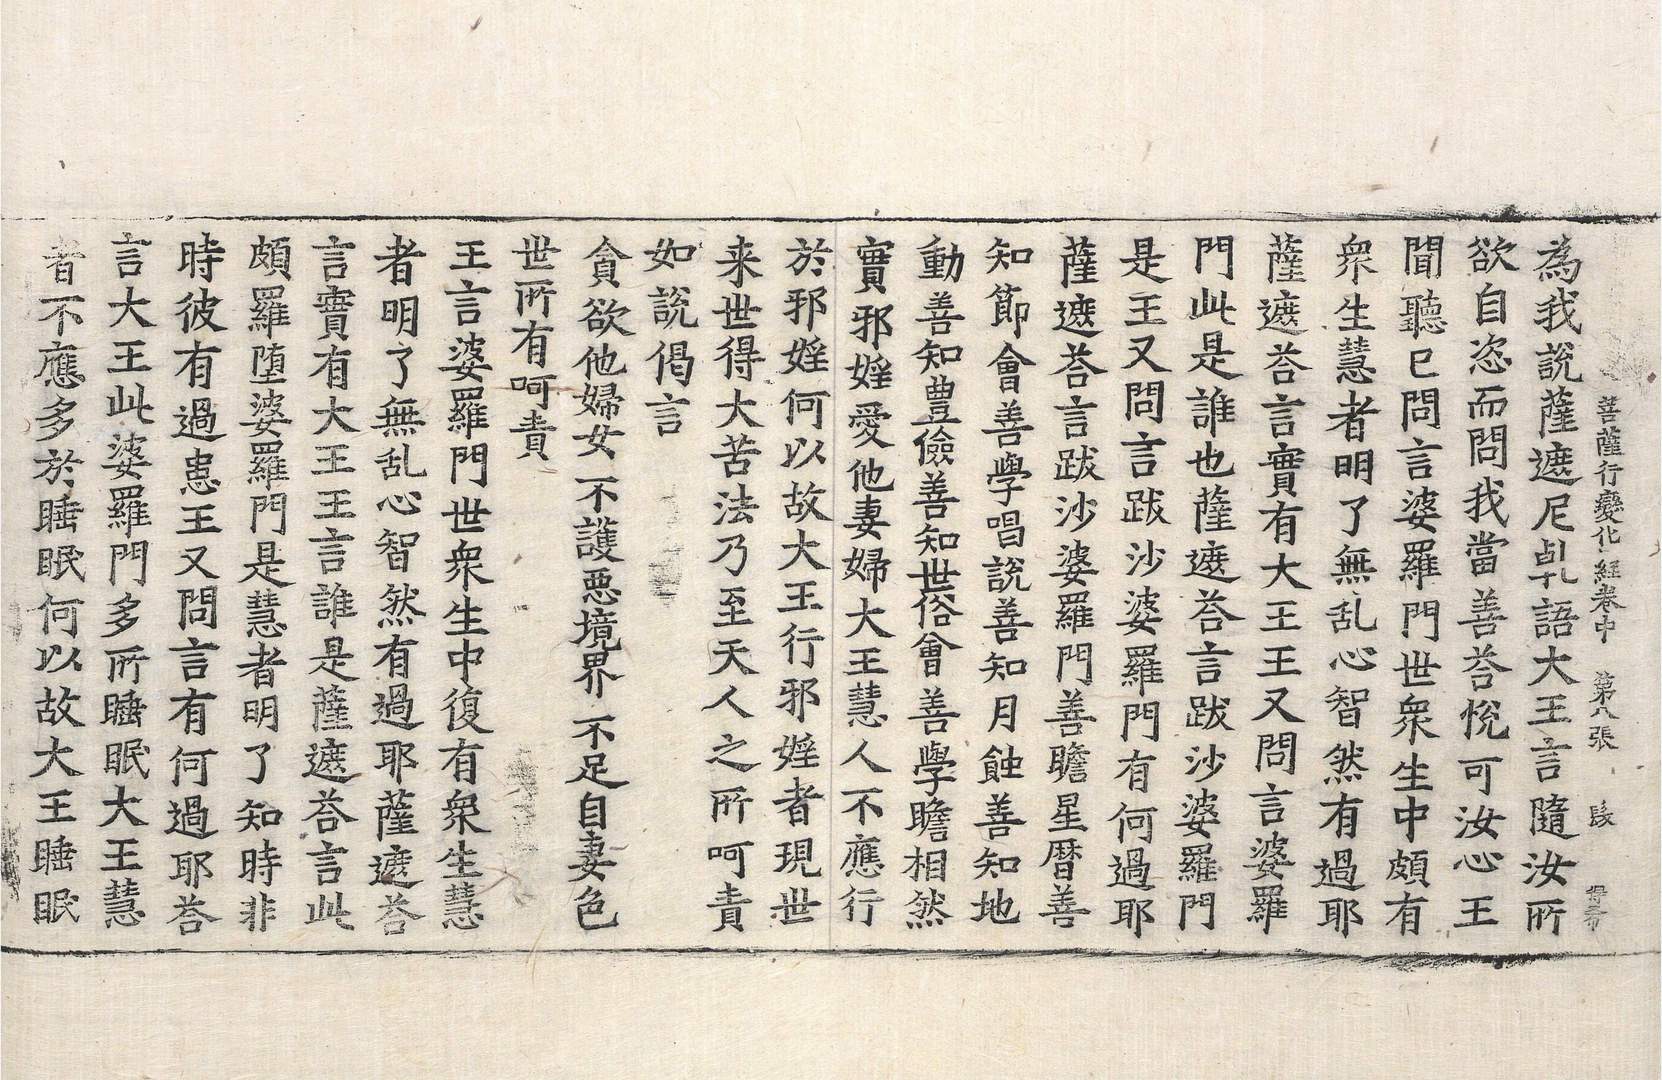 菩薩行變化經卷中 第八張 改
為我說薩遮尼乹語大王言隨汝所
欲自恣而問我當善荅悅可汝心王
聞聽已問言婆羅門世衆生中頗有
衆生慧者明了無乱心智然有過耶
薩遮荅言實有大王王又問言婆羅
門此是誰也薩遮荅言跋沙婆羅門
是王又問言跋沙婆羅門有何過耶
薩遮荅言跋沙婆羅門善瞻星曆善
知節會善學唱說善知月蝕善知地
動善知豊儉善知世俗會善學瞻相然
實邪婬愛他妻婦大王慧人不應行
於邪婬何以故大王行邪婬者現世
来世得大苦法乃至天人之所呵責
如說偈言
貪欲他婦女 不護惡境界 不足自妻色
世所有呵責
王言婆羅門世衆生中復有衆生慧
者明了無乱心智然有過耶薩遮荅
言實有大王王言誰是薩遮荅言此
頗羅堕婆羅門是慧者明了知時非
時彼有過患王又問言有何過耶荅
言大王此婆羅門多所睡眠大王慧
者不應多於睡眠何以故大王睡眠